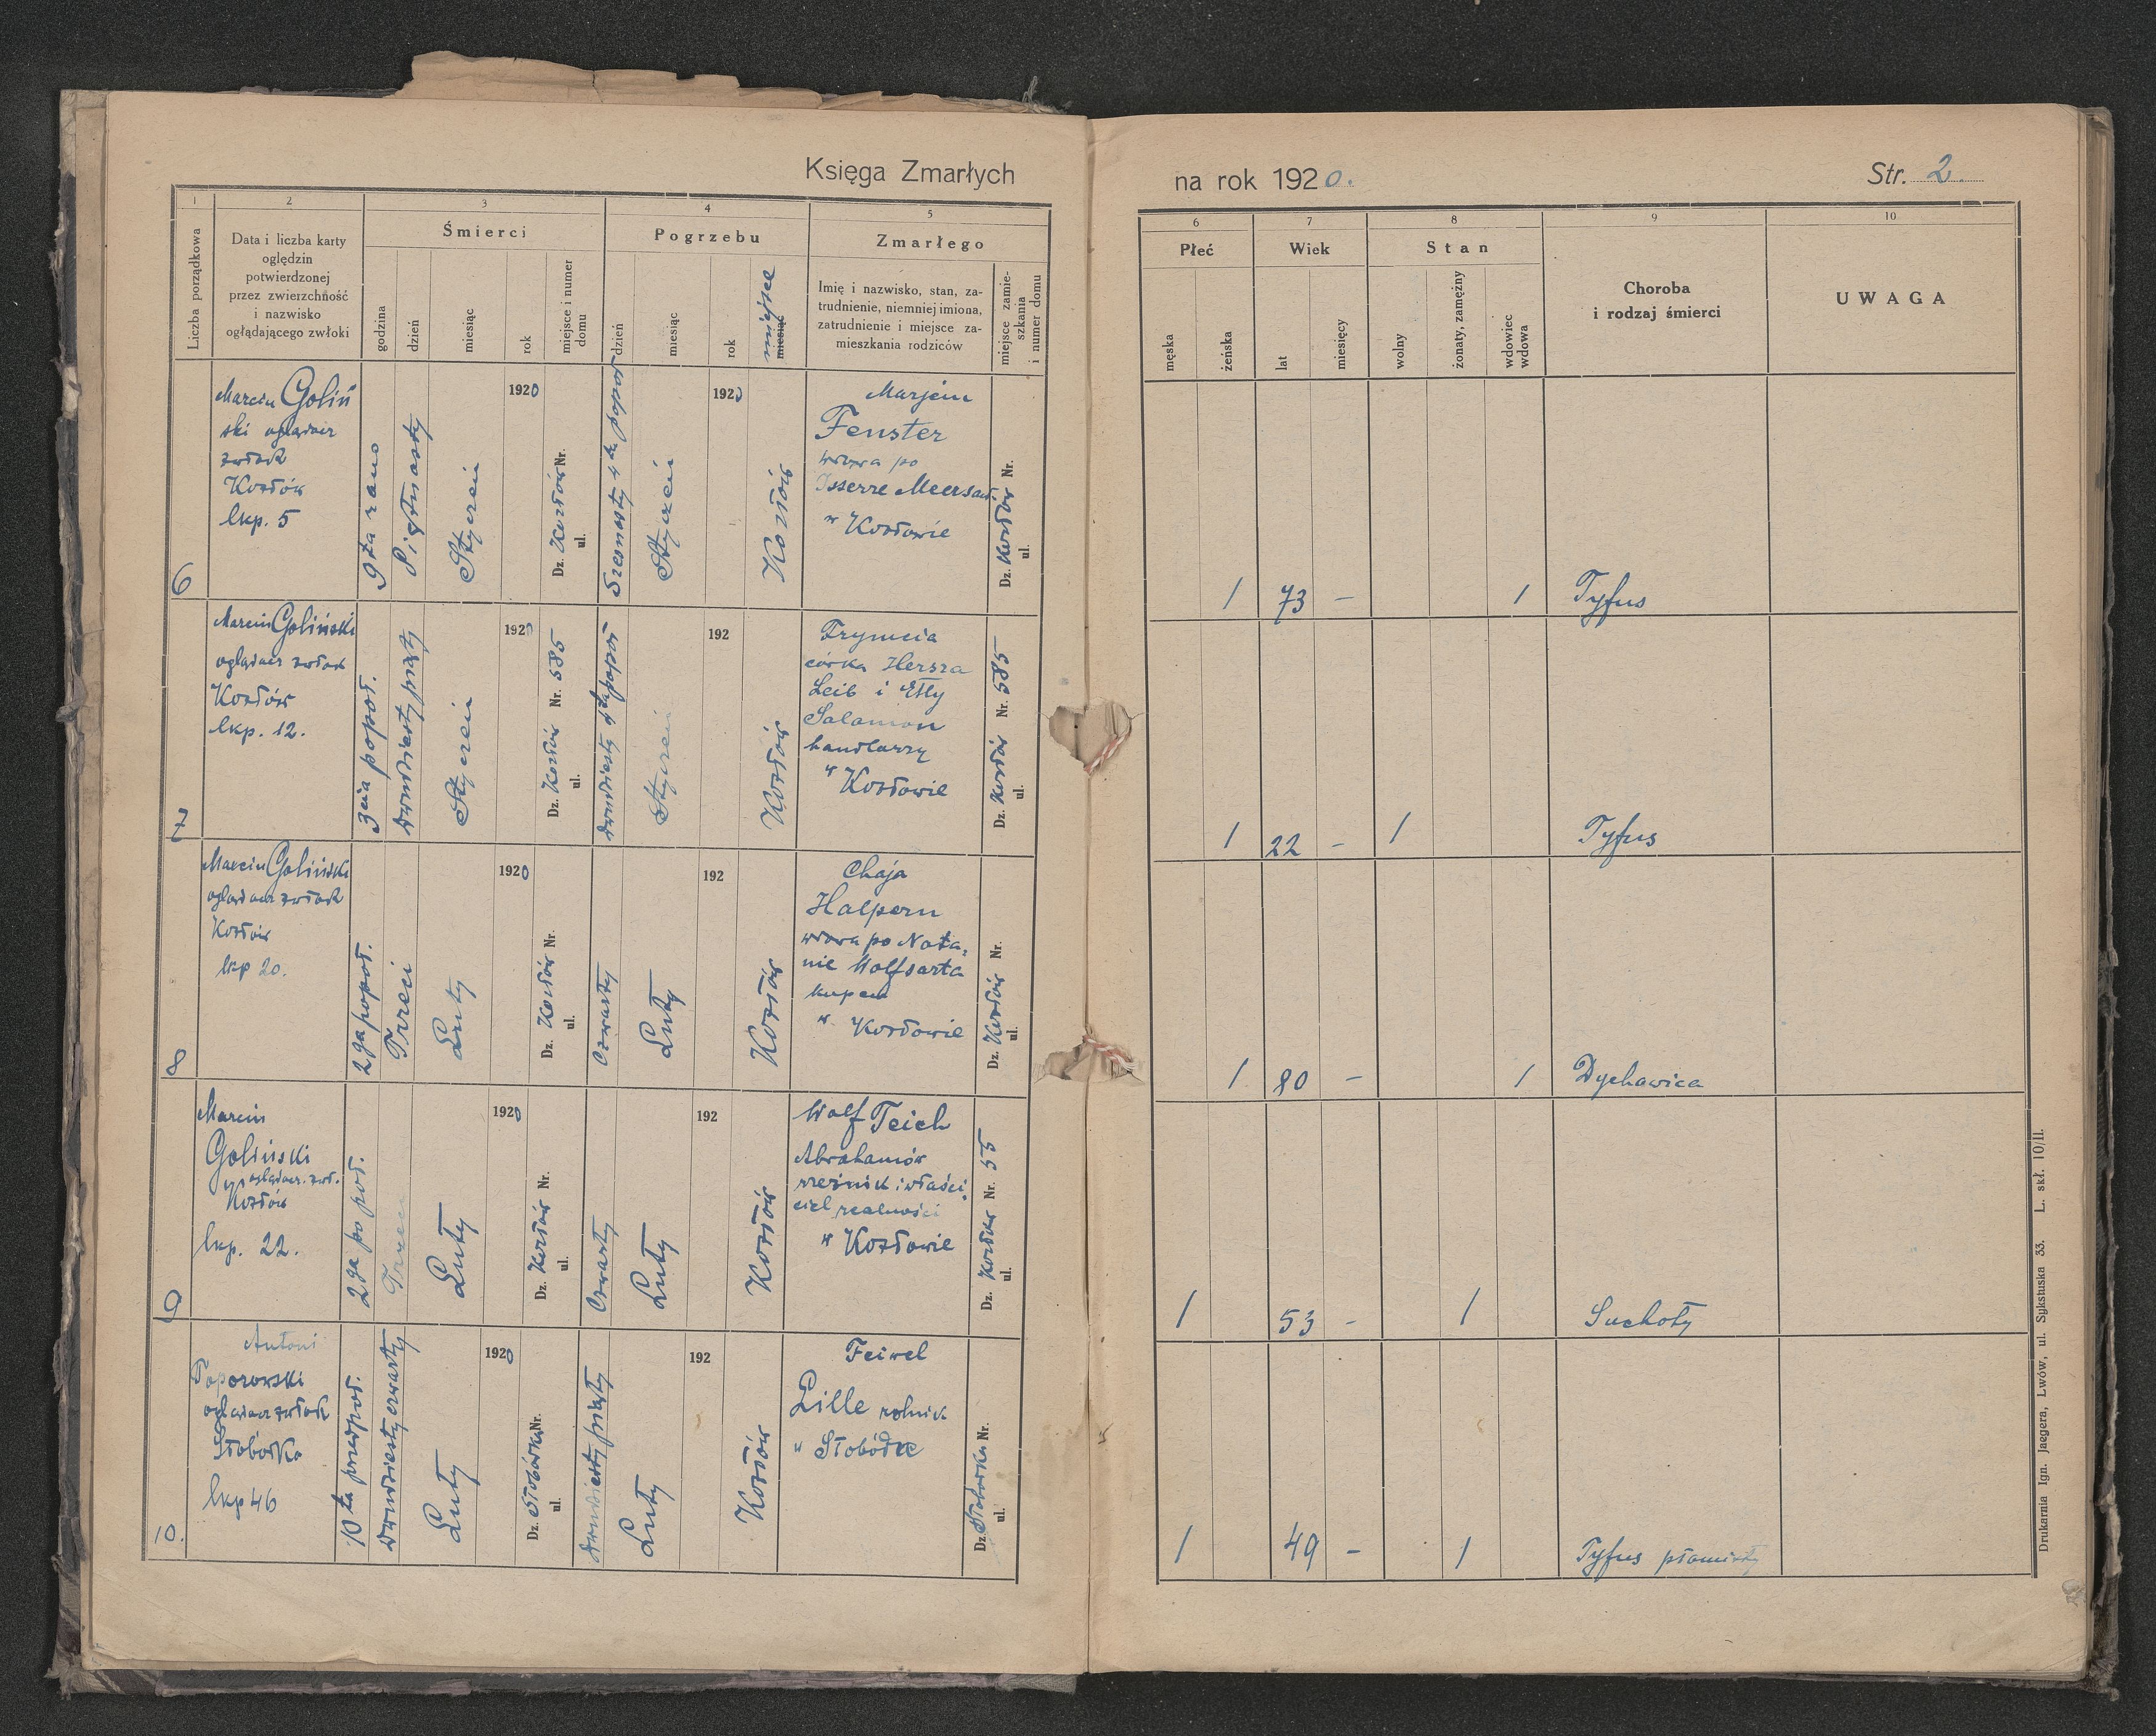 Księga Zmarłych
na rok 1920.
Str. 2.
1
2
3
4
5
6
7
8
9
10
Liczba porządkowa
Data i liczba karty
oględzin
potwierdzonej
przez zwierzchność
i nazwisko
oglądającego zwłoki
Śmierci
godzina
dzień
miesiąc
rok
miejsce i numer
domu
Pogrzebu
dzień
miesiąc
rok
miejsce
miesiąc
Zmarłego
Imię i nazwisko, stan, za-
trudnienie, niemniej imiona,
zatrudnienie i miejsce za-
mieszkania rodziców
miejsce zamie-
szkania
i numer domu
Płeć
męska
żeńska
Wiek
lat
miesięcy
Stan
wolny
żonaty, zamężny
wdowiec
wdowa
Choroba
i rodzaj śmierci
UWAGA
6
Marcin Goliń
ski oglądacz
zwłok
Kozłów
lkp. 5
9ta rano
Piętnasty
Styczeń
1920
Dz. Kozłów Nr.
ul.
Szesnasty 4ta popoł
Styczeń
1920
Kozłów
Marjem
Fenster
wdowa po
w Kozłowie
Dz. Kozłów Nr.
ul.
1
73
-
1
Tyfus
7
Marcin Goliński
oglądacz zwłok
Kozłów
lkp. 12.
3cia popoł.
dwudziesty piąty
Styczeń
1920
Dz. Kozłów Nr. 585
ul.
dwudziesty popoł
Styczeń
192
Kozłów
córka Hersza
Leib i Etly
Salamon
handlarzy
w Kozłowie
Dz. Kozłów Nr. 585
ul.
1
22
-
1
Tyfus
8
Marcin Goliński
oglądacz zwłok
Kozłów
lkp 20.
2ga popoł.
Trzeci
Luty
1920
Dz. Kozłów Nr.
ul.
Czwarty
Luty
192
Kozłów
Chaja
Halpern
wdowa po Nata-
nie Wolfsarta
kupca
w Kozłowie
Dz. Kozłów Nr.
ul.
1
80
-
1
Dychawica
9
Marcin
Goliński
oglądacz. zwł.
Kozłów
lkp. 22.
2ga po poł.
Trzeci
Luty
1920
Dz. Kozłów Nr.
ul.
Czwarty
Luty
192
Kozłów
Wolf Teich
Abrahamów
rzeźnik i właści-
ciel realności
w Kozłowie
Dz. Kozłów Nr. 55
ul.
1
53
-
1
Suchoty
10.
Antoni
Toporowski
oglądacz zwłok
Słobódka
lkp 46
10ta przedpoł.
dwudziesty czwarty
Luty
1920
Dz. Słobódka Nr.
ul.
dwudziesty piąty
Luty
192
Kozłów
Feiwel
Lille rolnik
w Słobódce
Dz. Słobódka Nr.
ul.
1
49
-
1
Tyfus plamisty
Drukarnia Ign. Jaegera, Lwów, ul. Sykstuska 33. L. skł. 10/II.